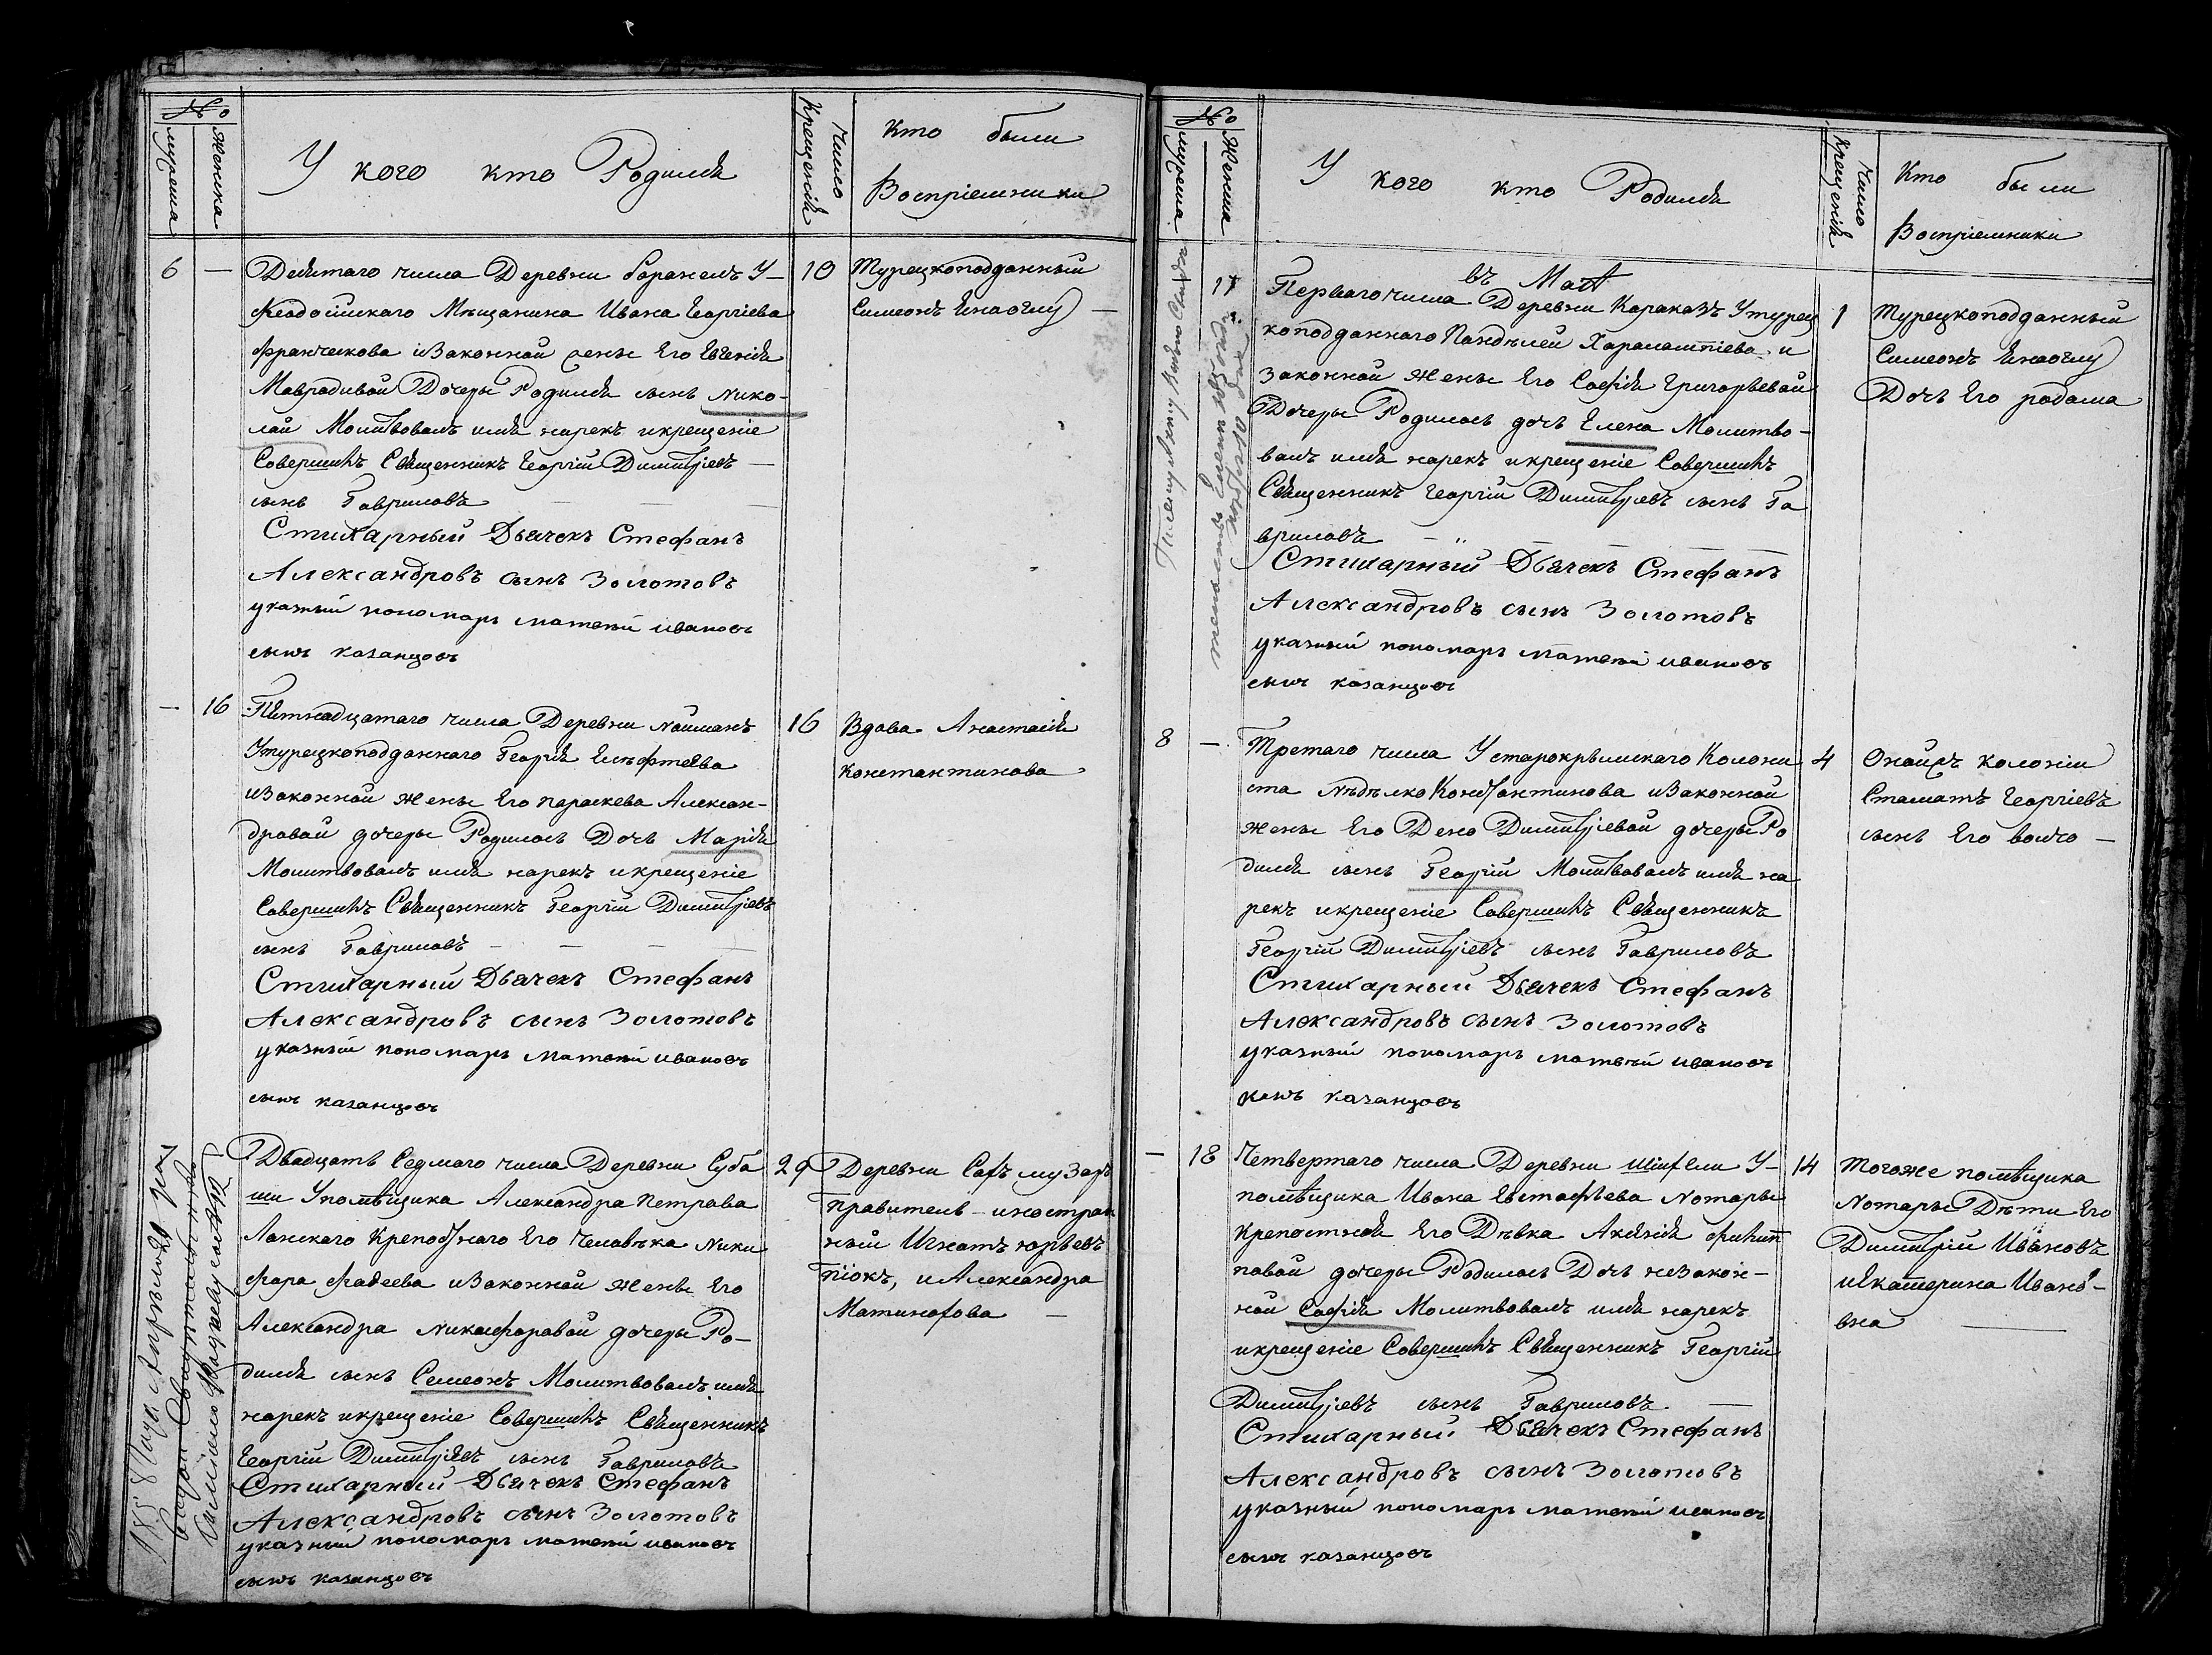 №
мужеска
женска
У кого кто Родился
число
крещенія
кто были
Воспріемники
6 — Девятаго числа Деревни Боранелъ У-
феодосійскаго Мѣщанина Ивана Георгіева
франческова и Законной жены Его Евгенія
Мавродивой Дочеры Родился сынъ Нико-
лай Молитвовалъ имя нарекъ икрещеніе
Совершилъ Священникъ Георгій Димитріевъ —
сынъ Гавриловъ
Стихарный Дьячекъ Стефанъ
Александровъ сынъ Золотовъ
указный пономарь матвей ивановъ
сынъ казанцовъ
10 Турецкоподданный
Симеонъ Енаоглу —
— 16 Пятнадцатаго числа Деревни Найманъ
Утурецкоподданнаго Георгія Елефтеева
иЗаконной жены Его параскева Алексан-
дровой дочеры Родилась Дочь Марія
Молитвовалъ имя нарекъ икрещеніе
Совершилъ Священникъ Георгіи Димитріевъ
сынъ Гавриловъ
Стихарный Дьячекъ Стефанъ
Александровъ сынъ Золотовъ
указный пономарь матвей ивановъ
сынъ казанцовъ
16 Вдова Анастасія
Константинова
Двадцать Седмаго числа Деревни Суба
ши Упомѣщика Александра Петрова
Ланскаго Крепостнаго Его Человѣка Ники
фора фадеева иЗаконной жены Его
Александра Никифоровой дочеры Ро-
дился сынъ Семеонъ Молитвовалъ имя
нарекъ икрещеніе Совершилъ Священникъ
Георгіи Димитріевъ сынъ Гавриловъ
Стихарный Дьячекъ Стефанъ
Александровъ сынъ Золотовъ
указный пономарь матвей ивановъ
сынъ казанцовъ
29 Деревни Сафъ музаръ
Правитель — иностран
ный Игнатъ юрьевъ
піокъ, и Александра
№
мужеска
женска
У кого кто Родился
число
крещенія
Кто были
Воспріемники
въ Маѣ
17 Перваго числа Деревни Каракозъ Утурец
коподданнаго Пандѣлей Харалампіева и
Законной жены Его Софія Григорьевой
Дочеры Родилась дочь Елена Молитво-
валъ имя нарекъ икрещеніе Совершилъ
Священникъ Георгіи Димитріевъ сынъ Га
вриловъ
Стихарный Дьячекъ Стефанъ
Александровъ сынъ Золотовъ
указный пономарь матвей ивановъ
сынъ казанцовъ
1 Турецкоподданный
Симеонъ Енаоглу
Дочь Его
8 — Третаго числа Устарокрымскаго Колони
ста Нѣдѣлко Константинова иЗаконной
жены Его Дено Димитріевой дочеры Ро
дился сынъ Георгій Молитвовалъ имя на
рекъ икрещеніе Совершилъ Священникъ
Георгіи Димитріевъ сынъ Гавриловъ
Стихарный Дьячекъ Стефанъ
Александровъ сынъ Золотовъ
указный пономарь матвей ивановъ
сынъ казанцовъ
4 колоніи
Стаматъ Георгіевъ
сынъ Его волчо —
— 18 Четвертаго числа Деревни У-
помѣщика Ивана Евстафьева Нотары
Крепостной Его Дѣвка Аксинія филип
повой дочеры Родилась Дочь незакон-
ной Софія Молитвовалъ имя нарекъ
икрещеніе Совершилъ Священникъ Георгій
Димитріевъ сынъ Гавриловъ
Стихарный Дьячекъ Стефанъ
Александровъ сынъ Золотовъ
указный пономарь матвей ивановъ
сынъ казанцовъ
14 тогоже помѣщика
Нотары Дѣти Его
Димитрій Ивановъ
иЕкатерина Ивано-
вна